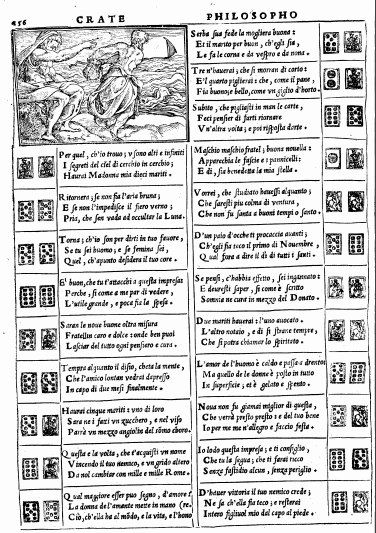 456
CRATE
PHILOSOPHO
Per quel, ch'io trouo; v sono alti e infiniti
I segreti del ciel di cerchio in cerchio;
Haurai Madonna mia dieci mariti.
Ritornera; se non sia l'aria bruna;
E se non l'impedisce il fiero verno;
Pria, che sen vada ad occultar la Luna.
Torna; ch'io son per dirti in tuo fauore,
Se tu sei huomo; e se femina sei,
Quel, ch'apunto desidera il tuo core.
E' buon, che tu t'attacchi a questa impresa;
Perche, si come a me par di vedere,
L'utile grande, e poca fia la spesa.
Saran le noue buone oltra misura
Fratellin caro e dolce: onde ben puoi
Lasciar del tutto ogni pensiero e cura.
Tempra alquanto il disio, cheta la mente,
Che l'amico lontan vedrai depresso
In capo di due mesi finalmente.
Haurai cinque mariti: vno di loro
Sara ne i fatti vn zucchero, e nel viso
Parrà vn mezzo angiolo del sommo choro.
Questa e la volta, che t'acquisti vn nome
Vincendo il tuo nemico, e vn grido altero
Da nol cambiar con mille e mille Rome.
Qual maggiore esser puo segno, d'amore
La donna de l'amante mette in mano
Ciò, ch'ella ha al mondo, e la vita, e l'hono
Serba sua fede la mogliera buona:
Et il marito per buon, ch'egli sia,
Le fa le corna e da vespro e da nona.
Tre n'hauerai; che si morran di corto:
E'l quarto piglierai: che, come il pane,
Fia buono; e bello, come vn giglio d'horto.
Subito, che pigliasti in man le carte,
Feci pensier di farti ritornare
Vn'altra volta; e poi risposta darte.
Maschio maschio fratel; buona nouella:
Apparecchia le fascie e i pannicelli:
E di, sia benedetta la mia stella.
Vorrei, che studiato hauessi alquanto;
Che saresti piu colma di ventura,
Che non fu santa a buoni tempi o santo.
D'un paio d'occhetti procaccia auanti;
Ch'egli sia teco il primo di Nouembre,
Qual fora a dire il dì di tutti i santi.
Se pensi, c'habbia effetto, sei ingannato:
E deuresti saper, si come è scritto
Somnia ne cura in mezzo del Donato.
Due mariti haurai: l'uno auocato.
L'altro notaio, e di si strane tempre,
Che si potria chiamar lo spiritato.
L'amor de l'huomo è caldo e passa a drento:
Ma quello de le donne è posto in tutto
In superficie; et è gelato e spento.
Noua non fu giamai miglior di questa,
Che verrà presto presto: e del tuo bene
Io per me me n'allegro e faccio festa.
Io lodo questa impresa; e ti consiglio,
Che tu la segua; che ti farai ricco
Senza fastidio alcun, senza periglio.
D'hauer vittoria il tuo nemico crede;
Ne sa ch'ella sia teco; e resterai
Intero figliuol mio dal capo al piede.